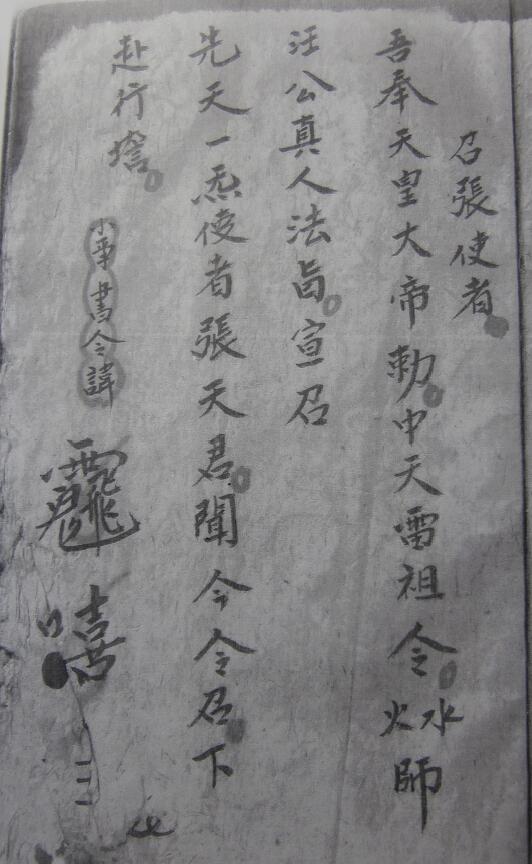 召張使者
吾奉天皇大帝勅中天雷祖令水火師
汪公真人法旨宣召
先天一炁使者張天君聞今令召下
赴行壇
書令諱
嘻三